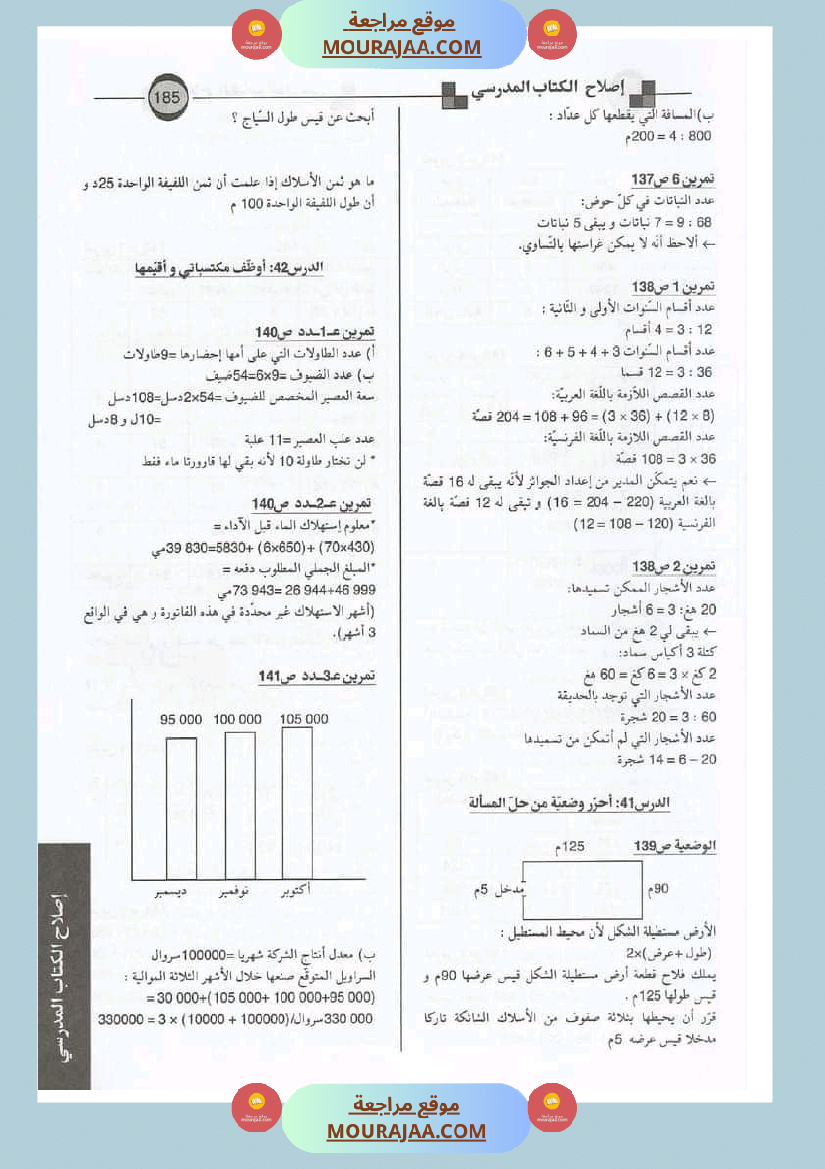 موقع مراجعة
MOURAJAA.COM
إصلاح الكتاب المدرسي
185
ب)المسافة التي يقطعها كل عدّاد :
800 : 4 = 200م
تمرين 6 ص137
عدد النباتات في كلّ حوض:
68 : 9 = 7 نباتات و يبقى 5 نباتات
← ألاحظ أنّه لا يمكن غراستها بالتّساوي.
تمرين 1 ص138
عدد أقسام السّنوات الأولى و الثّانية :
12 : 3 = 4 أقسام
عدد أقسام السّنوات 3 + 4 + 5 + 6 :
36 : 3 = 12 قسما
عدد القصص اللاّزمة باللّغة العربيّة:
(8 × 12) + (36 × 3) = 96 + 108 = 204 قصّة
عدد القصص اللازمة باللّغة الفرنسيّة:
36 × 3 = 108 قصّة
← نعم يتمكّن المدير من إعداد الجوائز لأنّه يبقى له 16 قصّة
بالغة العربية (220 – 204 = 16) و تبقى له 12 قصّة بالغة
الفرنسية (120 – 108 = 12)
تمرين 2 ص138
عدد الأشجار الممكن تسميدها:
20 هغ: 3 = 6 أشجار
← يبقى لي 2 هغ من السماد
كتلة 3 أكياس سماد:
2 كغ × 3 = 6 كغ = 60 هغ
عدد الأشجار التي توجد بالحديقة
60 : 3 = 20 شجرة
عدد الأشجار التي لم أتمكن من تسميدها
20 – 6 = 14 شجرة
الدرس41: أحزر وضعيّة من حلّ المسألة
الوضعية ص139
125م
90م
مدخل 5م
الأرض مستطيلة الشكل لأن محيط المستطيل :
(طول +عرض)×2
يملك فلاح قطعة أرض مستطيلة الشكل قيس عرضها 90م و
قيس طولها 125م .
قرّر أن يحيطها بثلاثة صفوف من الأسلاك الشانكة تاركا
مدخلا قيس عرضه 5م
أبحث عن قيس طول السّياج ؟
ما هو ثمن الأسلاك إذا علمت أن ثمن اللفيفة الواحدة 25د و
أن طول اللفيفة الواحدة 100 م
الدرس42: أوظّف مكتسباتي و أقيّمها
تمرين عـ1ـدد ص140
أ) عدد الطاولات التي على أمها إحضارها =9طاولات
ب) عدد الضيوف =9×6=54ضيف
سعة العصير المخصص للضيوف =54×2دسل=108دسل
=10ل و 8دسل
عدد علب العصير =11 علبة
* لن تختار طاولة 10 لأنه بقي لها قارورتا ماء فقط
تمرين عـ2ـدد ص140
*معلوم إستهلاك الماء قبل الآداء =
(70×430) +(6×650) +5830=39 830مي
*المبلغ الجملي المطلوب دفعه =
46 999+26 944 =73 943مي
(أشهر الاستهلاك غير محدّدة في هذه الفاتورة و هي في الواقع
3 أشهر).
تمرين عـ3ـدد ص141
95 000 100 000 105 000
ديسمبر نوفمبر أكتوبر
ب) معدل أنتاج الشركة شهريا =100000سروال
السراويل المتوقّع صنعها خلال الأشهر الثلاثة الموالية :
(95 000+ 100 000 +105 000)+30 000 =
330 000سروال/(100000 + 10000) × 3 = 330000
إصلاح الكتاب المدرسي
موقع مراجعة
MOURAJAA.COM